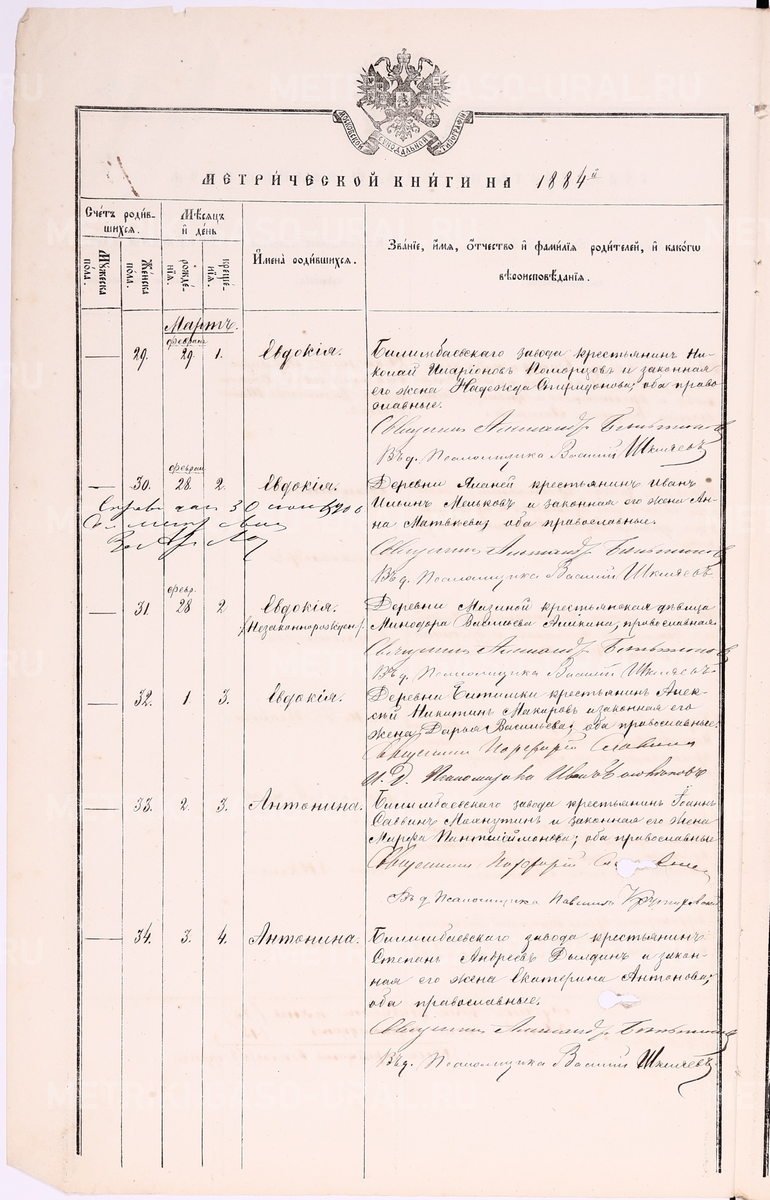 МОСКОВСКОЙ СѴНОДАЛЬНОЙ ТИПОГРАФІИ
МЕТРИ́ЧЕСКОЙ КНИ́ГИ НА 1884й
Сче́тъ роди́вшихся.
Мѣ́сяцъ и́ де́нь
И҆мена̀ роди́вшихся.
Зва́нїе, и҆́мя, о҆́тчество и҆ фами́лїя роди́телей, и҆ како́гѡ
вѣроисповѣ́данїя.
Мꙋжеска по́ла.
Же́нска по́ла.
рожде́нїя.
креще́нїя.
Мартъ.
февраля
29. 29. 1. Евдокія.
Билимбаевскаго завода крестьянинъ Ни-
колай Иларіоновъ Поморцовъ и законная
его жена Надежда Спиридонова; оба право
славные.
Священникъ Александръ
Въ д. Псаломщика Василій Шкляевъ
феврал
30. 28. 2. Евдокія.
Деревни крестьянинъ Иванъ
Ильинъ Мельковъ и законная его жена Ан-
на Матвѣева; оба православные.
30
Священникъ Александръ
Въ д. Псаломщика Василій Шкляевъ
февр.
31. 28 2 Евдокія.
/Незаконнорожден/.
Деревни Мазиной крестьянская дѣвица
Минодора Васильева Аликина; православная
Священникъ Александръ
Въ д. Псаломщика Василій Шкляевъ.
32. 1. 3. Евдокія.
Деревни Битимки крестьянинъ Алек-
сѣй Никитинъ Макаровъ и законная его
жена Дарья Васильева; оба православные.
Священникъ Порфирій Славнинъ
И. д. Псаломщика Иванъ
33. 2. 3. Антонина.
Билимбаевскаго завода крестьянинъ Іоаннъ
Саввинъ Махнутинъ и законная его жена
Марфа Пантелеймонова; оба православные
Священникъ Порфирій
Въ д. Псаломщика
34. 3. 4. Антонина.
Билимбаевскаго завода крестьянинъ
Степанъ Андреевъ Дылдинъ и закон-
ная его жена Екатерина Антонова;
оба православные.
Священникъ Александръ
Въ д. Псаломщика Василій Шкляевъ
METRIKI.GASO-URAL.RU